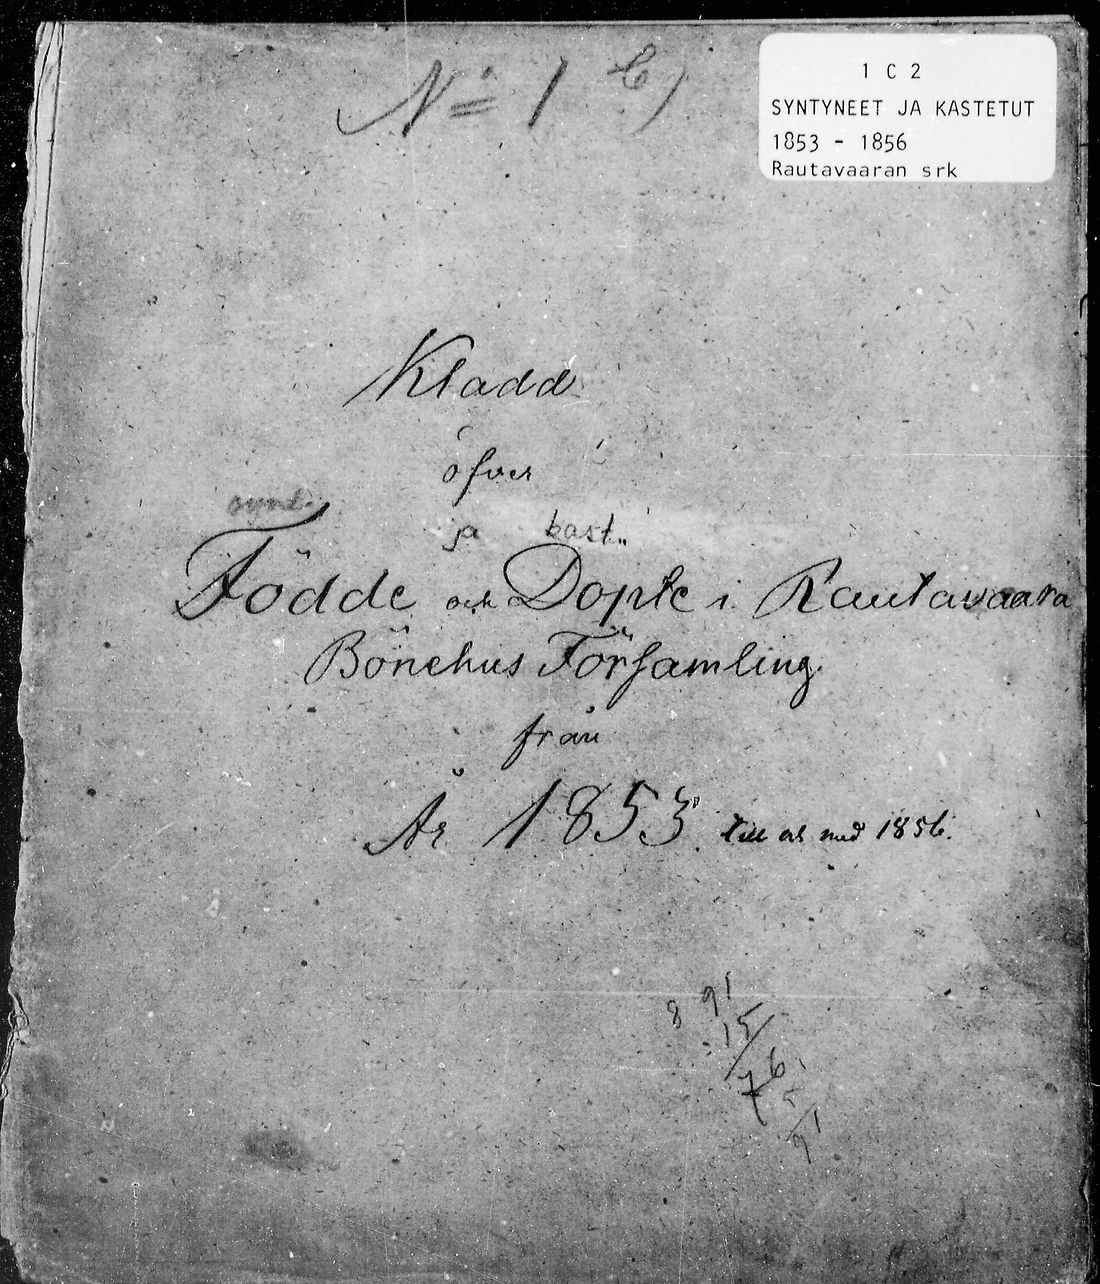 1 C 2
SYNTYNEET JA KASTETUT
1853 - 1856
Rautavaaran srk
No 1 b)
Kladd
öfver
synt.
ja kast.
Födde och Döpte i Rautavaara
Bönehus Församling.
från
År 1853. till och med 1856.
8 91
15
76
5
91